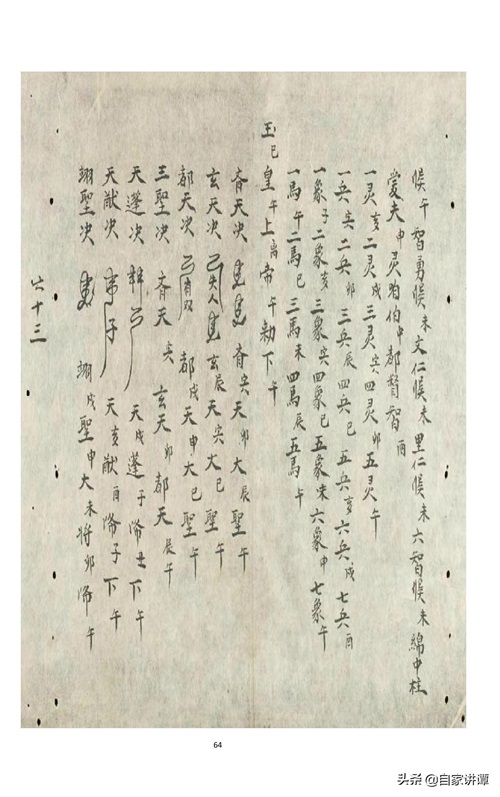 候午 智勇候未 文仁候未 里仁候未 六智候未 綿中桂
爱夫申灵昀伯中都督智酉
一灵亥二灵戍三灵寅四灵卯五灵午
一兵寅二兵卯三兵辰四兵巳五兵亥六兵戍七兵酉
一象子二象亥三象寅四象巳五象未六象中七象午
一馬午二馬巳三馬未四馬辰五馬午
玉巳皇午上离帝午勅下午
斉天决 斉寅天卯大辰聖午
玄天决 玄辰天寅大巳聖午
都天决 都戍天申大巳聖午
三聖决 斉天寅 玄天卯 都天辰午
天蓬决 天戍蓬子帝丑下午
天猷决 天亥猷酉帝子下午
翊聖决 翊戍聖申大未将卯帝午
六十三
64
头条 @自家讲谭